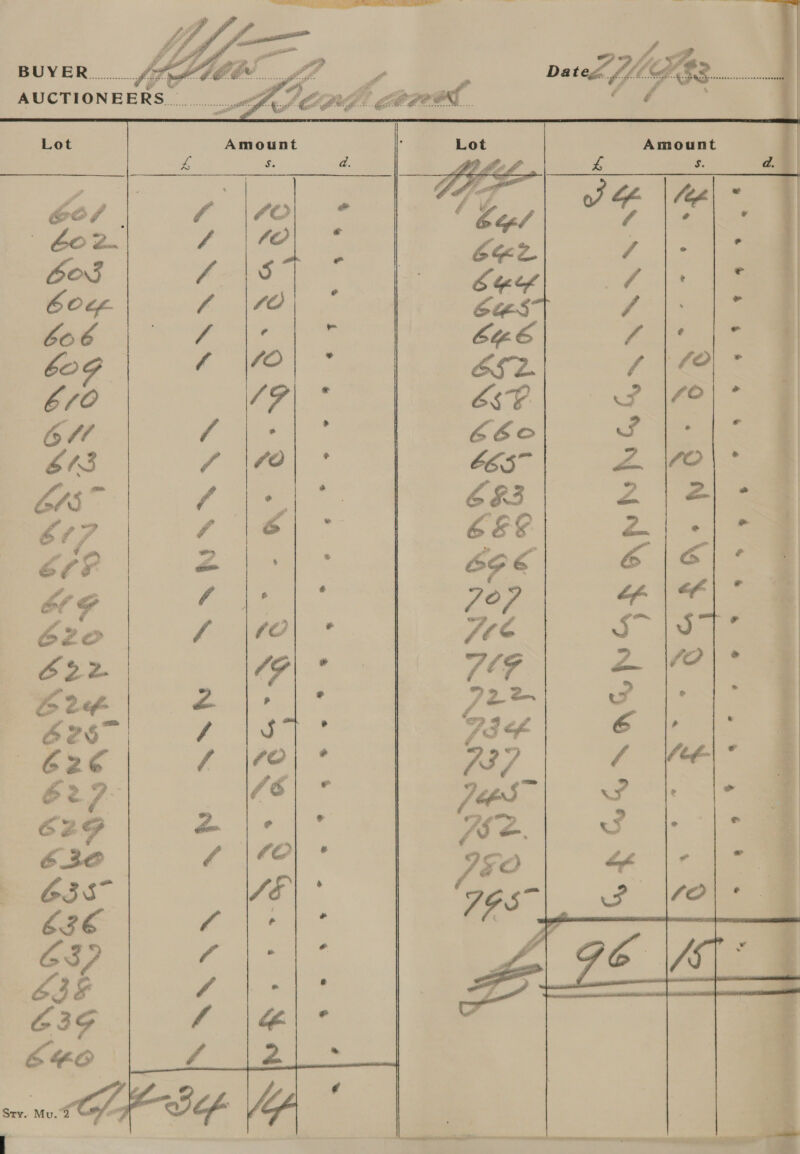 BUYER
Date 27/10/32
AUCTIONEERS
Lot Amount
£ s. d.
601 1 10 -
602 1 10 -
603 1 5 -
604 1 10 -
606 1 - -
609 1 10 -
610 19 -
611 1 - -
613 1 10 -
615 1 - -
617 1 6 -
618 2 - -
619 1 - -
620 1 10 -
622 19 -
624 2 - -
625 1 5 -
626 1 10 -
627 16 -
629 2 - -
630 1 10 -
635 18 -
636 1 - -
637 1 - -
638 1 - -
639 1 4 -
640 1 2 -
C/f 34 14 -
Sty. Mu. 2
Lot Amount
£ s. d.
B/f 34 14 -
641 1 - -
642 1 - -
644 1 - -
645 1 - -
646 1 - -
652 1 10 -
658 3 10 -
660 3 - -
665 2 10 -
683 2 2 -
688 2 - -
696 6 6 -
707 4 4 -
716 5 5 -
719 2 10 -
722 3 - -
734 6 - -
737 1 14 -
745 3 - -
752 3 - -
780 4 - -
795 3 10 -
£ 96 15 -